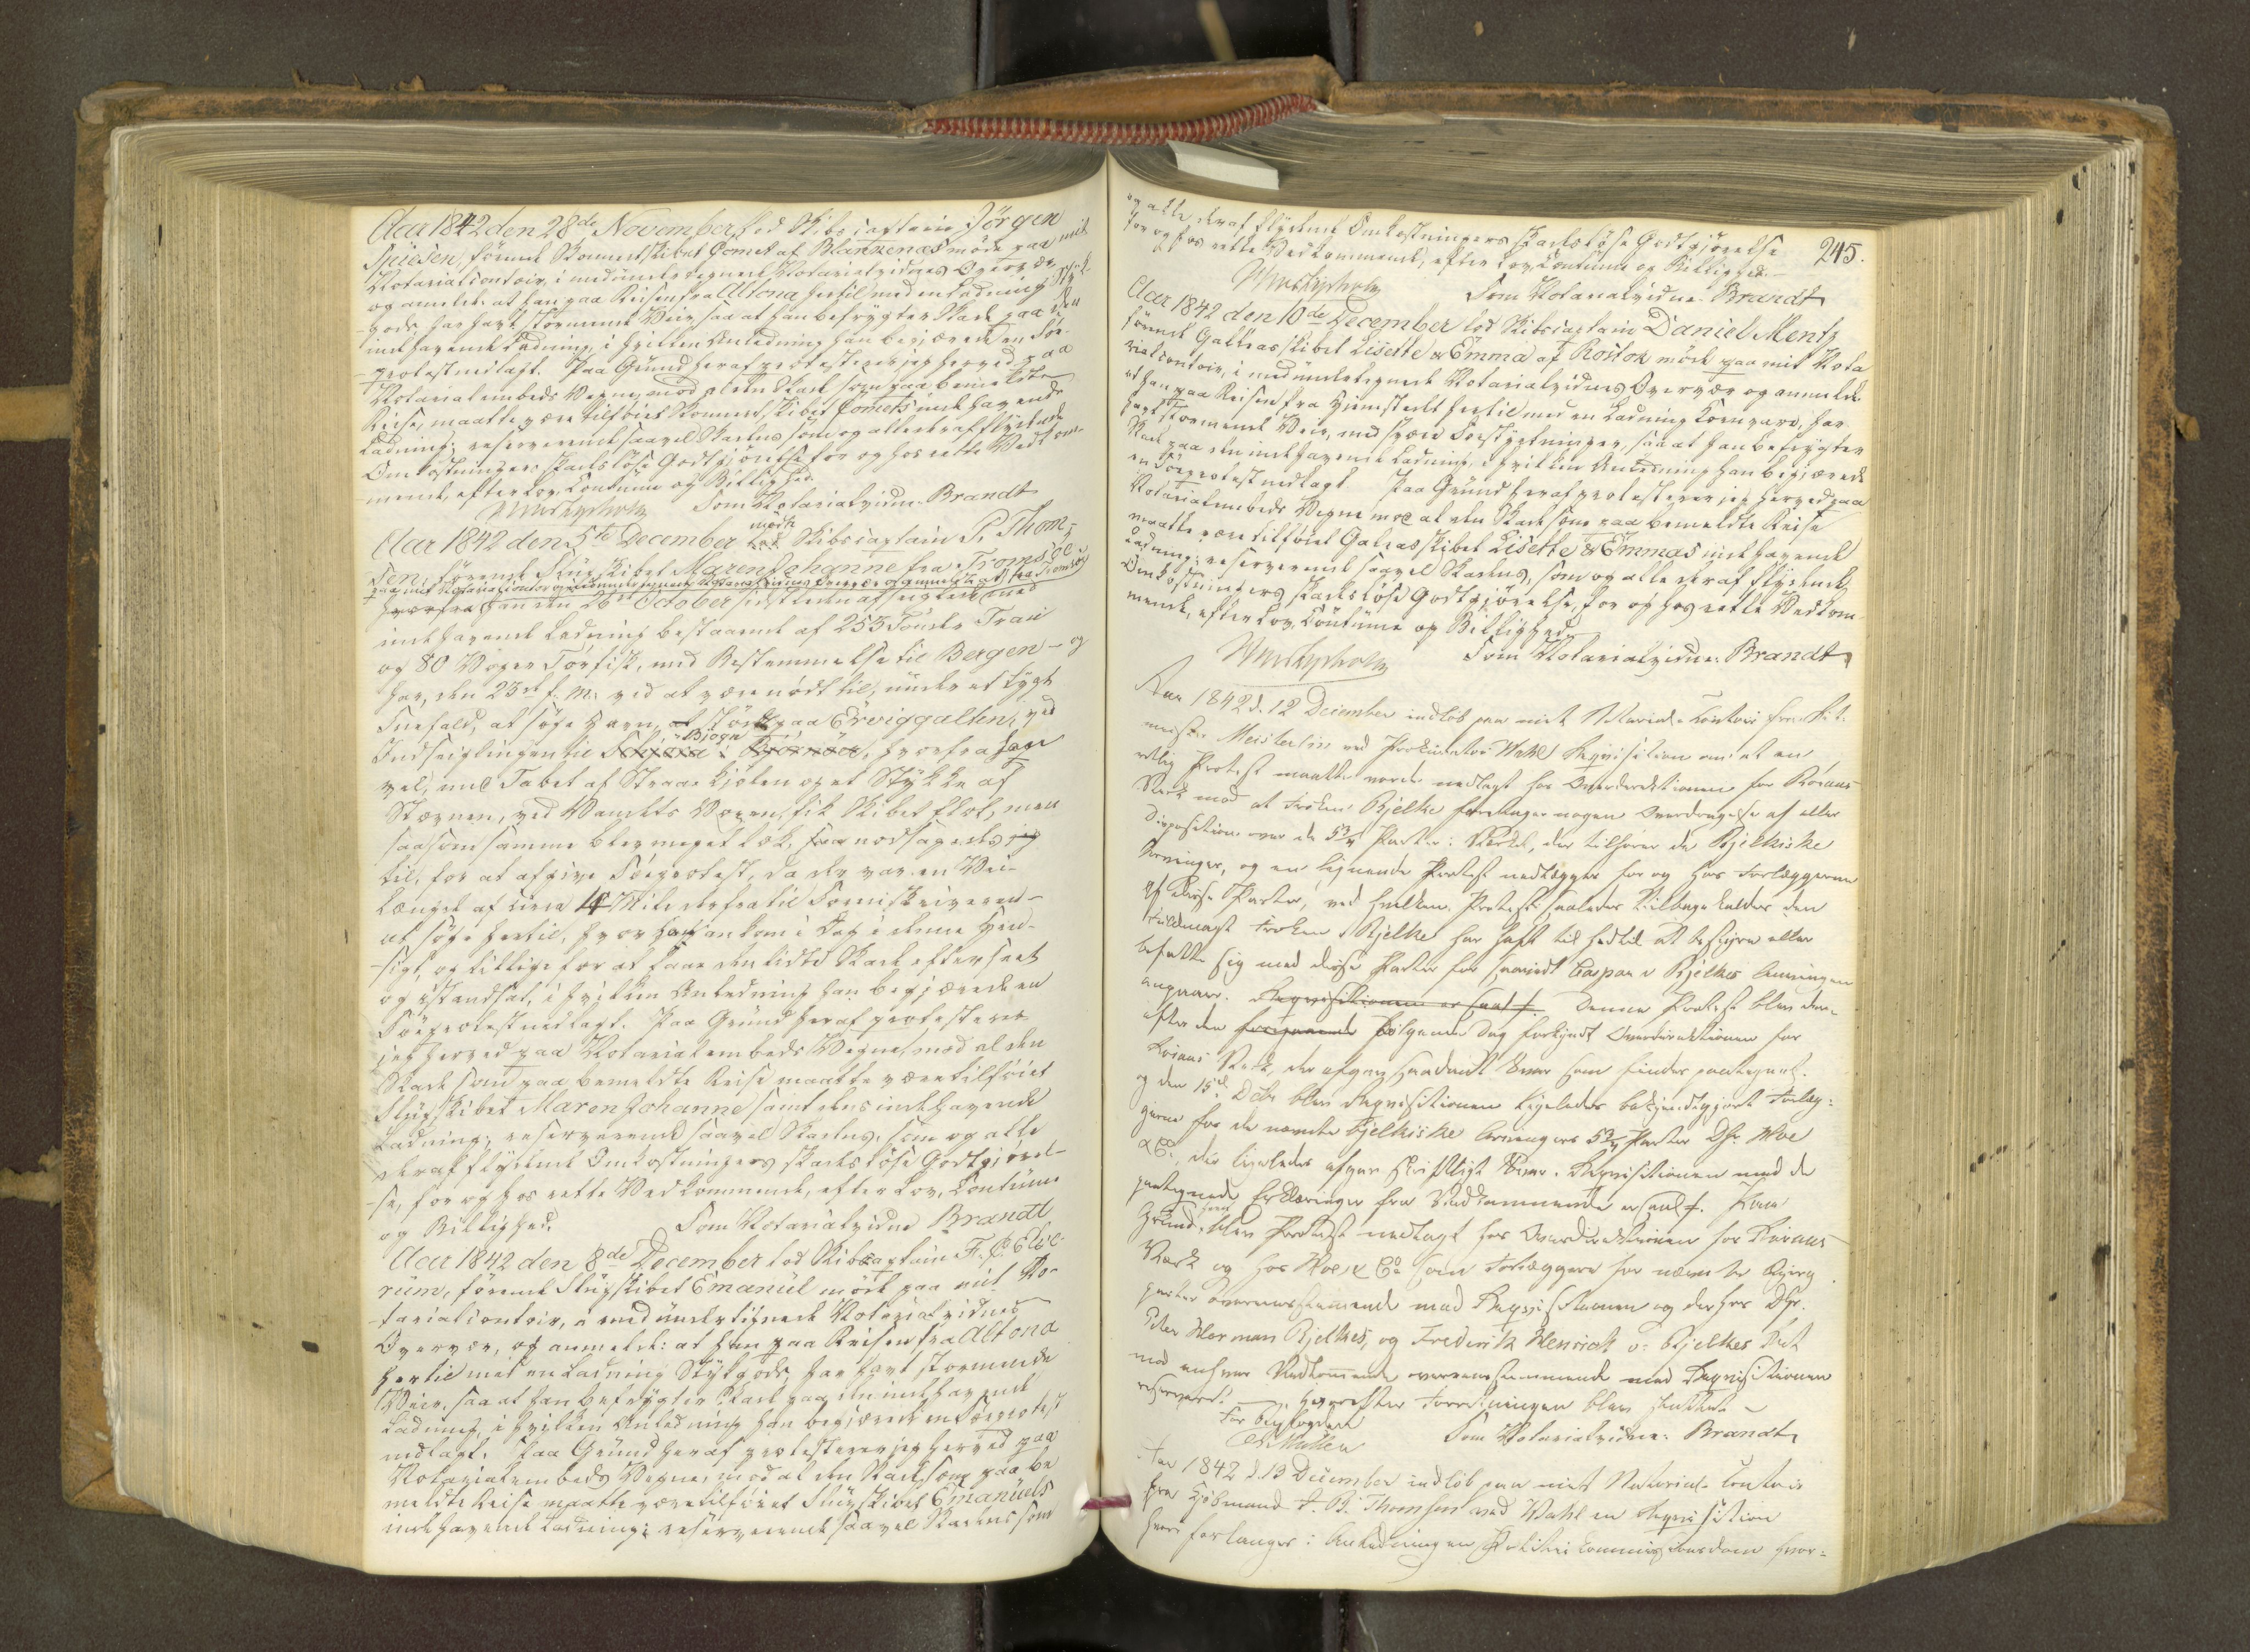 Aar 1842 den 28de November, lod Skibscaptain Jörgen
Spiesen, förende Skonnertskibet Comet af Blankenæs möde paa mit
Notarialcontoir, i medundertegnede Notarialvidnes Overvær
og anmelde: at han paa Reisen fra Altona hertil med en Ladning Styk-
gods, har havt stormende Veir, saa at han befrygter Skade paa den
indehavende Ladning, i hvilken Anledning han begjærede en Söe-
protest nedlagt. Paa Grund heraf protesterer jeg herved paa
Notarialembeds Vegne, mod al den Skade som paa bemeldte
Reise, maatte være tilföiet Skonnertskibet Comets indehavende
Ladning; reserverende saavel Skadens som og alle deraf flydende
Omkostningers skadeslöse Godtgjörelse for og hos rette Vedkom-
mende, efter Lov, Coutume og Billighed.
Som Notarialvidne Brandt
Aar 1842 den 5te December mödte Skibscaptain P. Thom-
sen, förende Slupskibet Maren Johanne fra Tromsöe
paa mit Notarialcontoir i medundertegnede Notarialvidnes Overvær og anmeldte at fra Tromsöe
hvorfra han den 26de October sidstleden afseilede med
indehavende Ladning bestaaende af 253 Tönder Tran
og 80 Voger Törfisk, med Bestemmelse til Bergen – og
har, den 23de f. M. ved at være nödt til, under et tykt
Sneefald, at söge Havn, stödt paa Erviggalten, ved
Indseilingen til Bjogn hvorfra han
vel, med Tabet af Straae Kjölen og et Stykke af
Stævnen, ved Vandets Voxen, fik Skibet flot, men
saasom samme blev meget læk, saa nödsagedes jeg
til, for at afgive Söeprotest, da der var en Vei-
længde af circa 14 Mile derfra til Sorenskriveren –
at söge hertil, hvor han ankom i Dag i denne Hen-
sigt, og tillige for at faae den lidte Skade efterseet
og istandsat, i hvilken Anledning han begjærede en
Söeprotest nedlagt. Paa Grund heraf protesterer
jeg herved paa Notarialembeds Vegne, mod al den
Skade som paa bemeldte Reise maatte være tilföiet
Slupskibet Maren Johanne samt dens indehavende
Ladning; reserverende saavel Skadens, som og alle
deraf flydende Omkostningers skadeslöse Godtgjörel-
se, for og hos rette Vedkommende, efter Lov, Coutume
og Billighed. Som Notarialvidne Brandt
Aar 1842 den 8de December lod Skibscaptain F. C. Elbe-
rum, förende Slupskibet Emanuel möde paa mit No-
tarialcontoir, i medundertegnede Notarialvidnes
Overvær, og anmelde: at han paa Reisen fra Altona
hertil med en Ladning Stykgods, har havt stormende
Veir, saa at han befrygter Skade paa den indehavende
Ladning, i hvilken Anledning han begjærede en Söeprotest
nedlagt. Paa Grund heraf protesterer jeg herved paa
Notarialembeds Vegne, mod al den Skade som paa be-
meldte Reise maatte være tilföiet Slupskibet Emanuels
indehavende Ladning; reserverende saavel Skadens som
245.
og alle deraf flydende Omkostningers skadeslöse Godtgjörelse
for og hos rette Vedkommende, efter Lov, Coutume og Billighed.
Som Notarialvidne Brandt
Aar 1842 den 10de December lod Skibscaptain Daniel Mentz
förende Galleasskibet Lisette & Emma af Rostok möde paa mit Nota
rialcontoir, i medundertegnede Notarialvidnes Overvær og anmelde:
at han paa Reisen fra Hjemstedet hertil med en Ladning Kornvare, har
havt stormende Veir, med svære Söestyrtninger, saa at han befrygter
Skade paa den indehavende Ladning, i hvilken Anledning han begjærede
en Söeprotest nedlagt. Paa Grund heraf protesterer jeg herved paa
Notarialembeds Vegne mod al den Skade som paa bemeldte Reise
maatte være tilföiet Galeasskibet Lisette & Emmas indehavende
Ladning; reserverende saavel Skadens, som og alle deraf flydende
Omkostningers skadeslöse Godtgjörelse, for og hos rette Vedkom
mende, efter Lov, Coutume og Billighed.
Som Notarialvidne: Brandt
Aar 1842 d. 12 December indlöb paa mit Notarial-Contoir fra Rit-
mester Meisterlin ved Prokurator Wahl Reqvisition om at en
vedlig Protest maatte vorde nedlagt hos Overdirektionen for Röraas
Værk mod at Fröken Bjelke foretager nogen Overdragelse af eller
Disposition over de 5 3/4 Parter i Værket, der tilhörer de Bjelkiske
Arvinger, og en lignende Protest nedlægges for og hos Forlæggerne
af disse Parter, ved hvilken Protest saaledes tilbagekaldes den
Fuldmagt Fröken Bjelke har havt til hidtil at bestyre eller
befatte sig med disse Parter for saavidt Caspar v Bjelkes Arvinger
angaaer. Reqvisitionen er saal. f. Denne Protest blev der-
efter den foregaaende fölgende Dag forkyndt Overdirektionen for
Röraas Værk, der afgav saadant Svar som findes paategnet.
og den 15de Dcbr blev Reqvisitionen ligeledes bekjendtgjort Forlæg-
gerne for de nævnte Bjelkiske Arvingers 5 3/4 Parter Dhr Moe
& Co., der ligeledes afgav skriftligt Svar. Reqvisitionen med de
paategnede Erklæringer fra Vedkommende er saal. f. Paa
Grund heraf blev Protest nedlagt hos Overdirektionen for Röraas
Værk og hos Moe & Co som Forlæggere for nævnte Bjerg
parter overensstemmende med Reqvisitionen og derhos Dhr.
Peter Herman Bjelkes, og Frederik Henrich v. Bjelkes Ret
mod enhver Vedkommende overensstemmende med Reqvisitionen
reserveret. – hvorefter Forretningen blev sluttet –
For Byfogden
Müller Som Notarialvidne: Brandt
Aar 1842 d. 13 December indlöb paa mit Notarial-Contoir
fra Kjöbmand F. B. Thomsen ved Wahl en Reqvisition
hvori forlanges i Anledning en Politi Commissionsdom hvor-